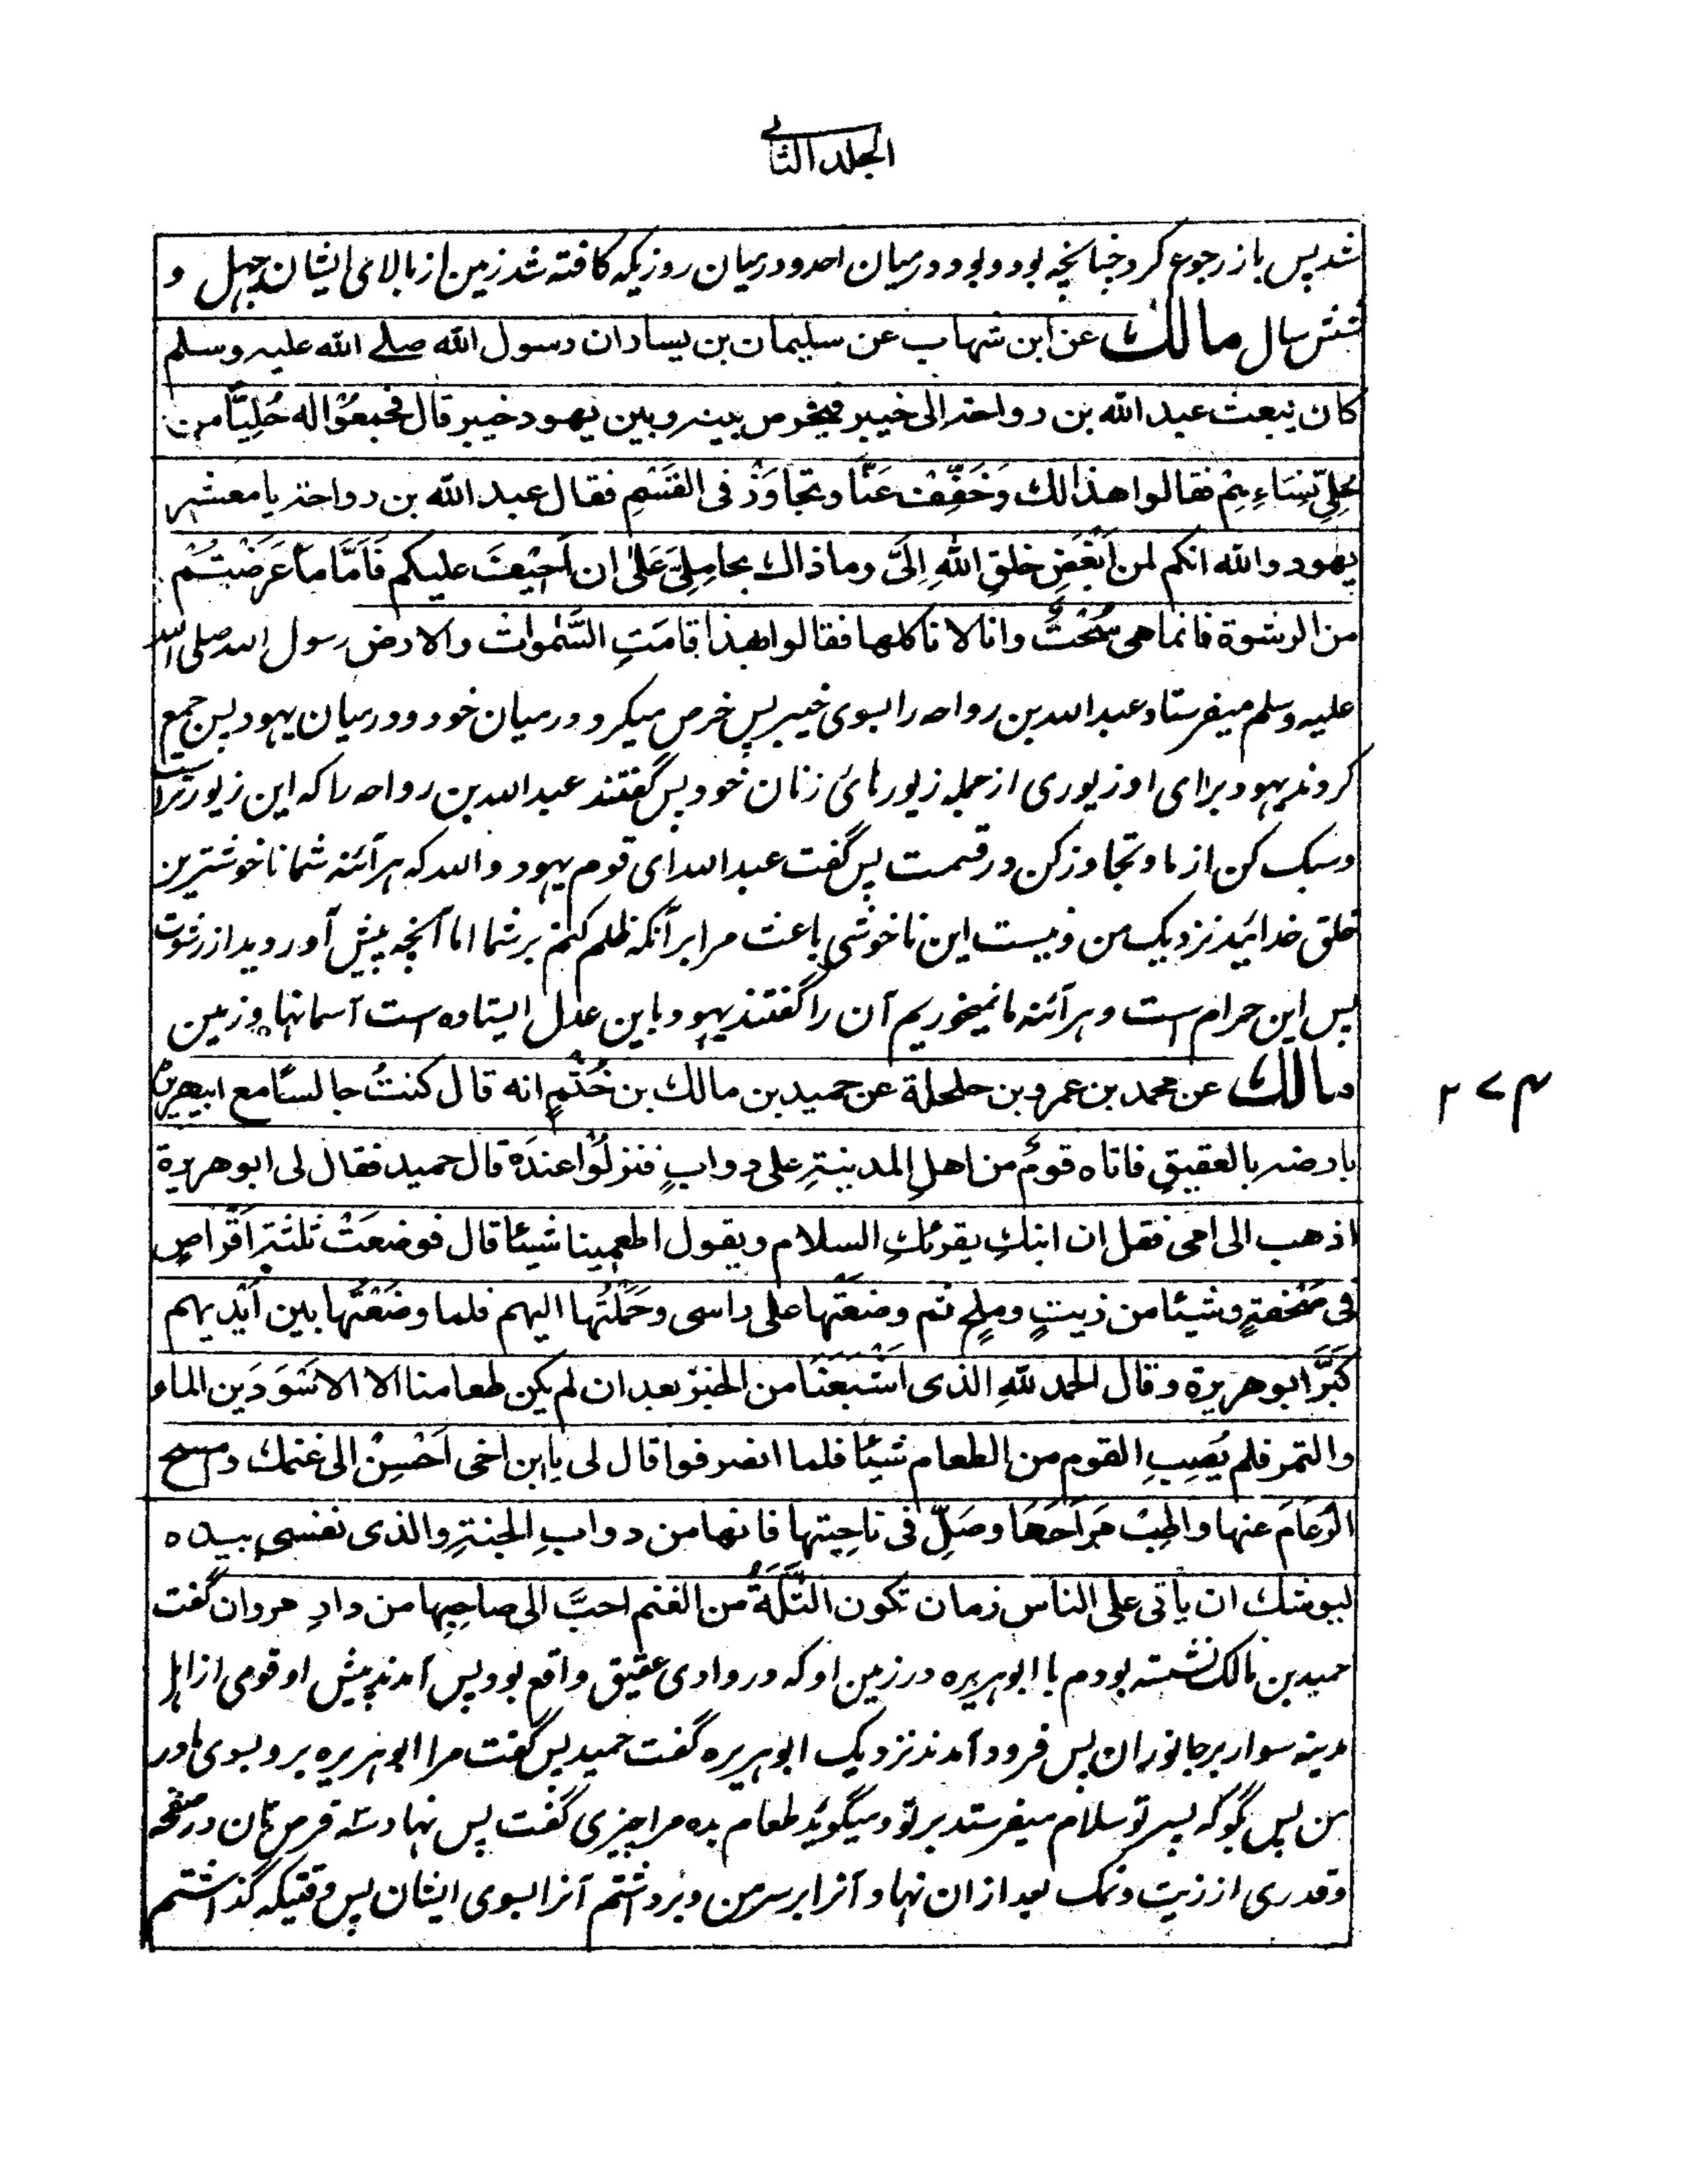 الجلد الثانی
شد پس باز رجوع کرد چنانچه بود و بود درمیان احد و درمیان روزیکه کافته شد زمین از بالای ایشان چهل و
شش سال مالك عن ابن شهاب عن سليمان بن يسار ان رسول الله صلے الله عليه وسلم
كان يبعث عبد الله بن رواحة الى خيبر فيخرص بينه وبين يهود خيبر قال فجمعُوْا له حُلِيًّا من
حُلِيِّ نِسَاءِهِمْ فقالوا هذا لك وَخَفِّفْ عَنَّا وتجاوَزْ فى القَسْمِ فقال عبد الله بن رواحة يا معشر
يهود والله انكم لمن اَبْغَضِ خلقِ اللهِ اِلَىَّ وما ذاك بحامِلِىْ عَلٰى ان اَحِيْفَ عليكم فَاَمَّا ما عَرَضْتُمْ
من الرشوة فانما هى سُحْتٌ وانا لا ناكلها فقالوا بهذا قامَتِ السَّمٰوٰت والارض رسول الله صلی الله
علیه وسلم میفرستاد عبدالله بن رواحه را بسوی خیبر پس خرص میکرد درمیان خود و درمیان یهود پس جمع
کردند یهود برای او زیوری از جمله زیورهائ زنان خود پس گفتند عبدالله بن رواحه را که این زیور تراست
وسبک کن از ما و تجاوز کن در قسمت پس گفت عبدالله ای قوم یهود والله که هرآئنه شما ناخوشترین
خلق خدائید نزدیک من و نیست این ناخوشی باعث مرا برآنکه ظلم کنم بر شما اما آنچه پیش آوردید از رشوت
پس این حرام است و هرآئنه ما نمیخوریم آن را گفتند یهود باین عدل ایستاده است آسمانها و زمین
مالك عن محمد بن عمرو بن حلحلة عن حميد بن مالك بن خُثَمٍ انه قال كنتُ جالسًا مع ابيهريرة
بارضه بالعقيقِ فاتاه قومٌ من اهلِ المدينةِ على دوابٍ فنزلُوْا عندَهٗ قال حميد فقال لى ابوهريرة
اذهب الى امى فقل ان ابنكِ يقرئكِ السلام ويقول اطعمينا شيئًا قال فوضعَتْ ثلثةَ اَقْراصٍ
فى صَحْفَةٍ وشيئا من زيتٍ وملحٍ ثم وضعَتْها على راسى وحَمَلْتُها اليهم فلما وضَعْتُها بين اَيْدِيهم
كَبَّرَ ابوهريرة وقال الحمد للهِ الذى اَشْبَعَنَا من الخبز بعد ان لم يكن طعامنا الا الاَسْوَدَين الماء
والتمر فلم يُصِبِ القوم من الطعام شيئًا فلما انصرفوا قال لى يا ابن اخى اَحْسِنْ الى غنمك وامسح
الرُّعَامَ عنها واطِبْ مُرَاحَهَا وصَلِّ فى ناحِيتها فانها من دوابِ الجنةِ والذى نفسى بيده
ليوشك ان ياتى على الناس زمان تكون الثُّلَّةُ من الغنم احبَّ الى صاحِبِها من دارِ مروان گفت
حمید بن مالک نشسته بودم با ابوهریره در زمین او که در وادی عقیق واقع بود پس آمدند پیش او قومی از اهل
مدینه سوار بر جانوران پس فرود آمدند نزدیک ابوهریره گفت حمید پس گفت مرا ابوهریره برو بسوی مادر
من پس بگو که پسر تو سلام میفرستد بر تو و میگوید طعام بده مرا چیزی گفت پس نهاد سه قرص نان در صحفه
وقدری از زیت و نمک بعد از ان نهاد آنرا بر سر من و برداشتم آنرا بسوی ایشان پس وقتیکه گذاشتم
۲۷۴